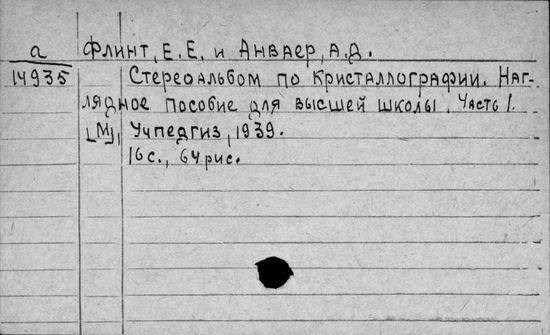 а Флинт, Е. Е. и Анваер, А. Д.
14935 Стереоальбом по кристаллографии. Наг-
лядное пособие для высшей школы. Часть 1.
[М], Учпедгиз, 1939.
16 с., 64 рис.